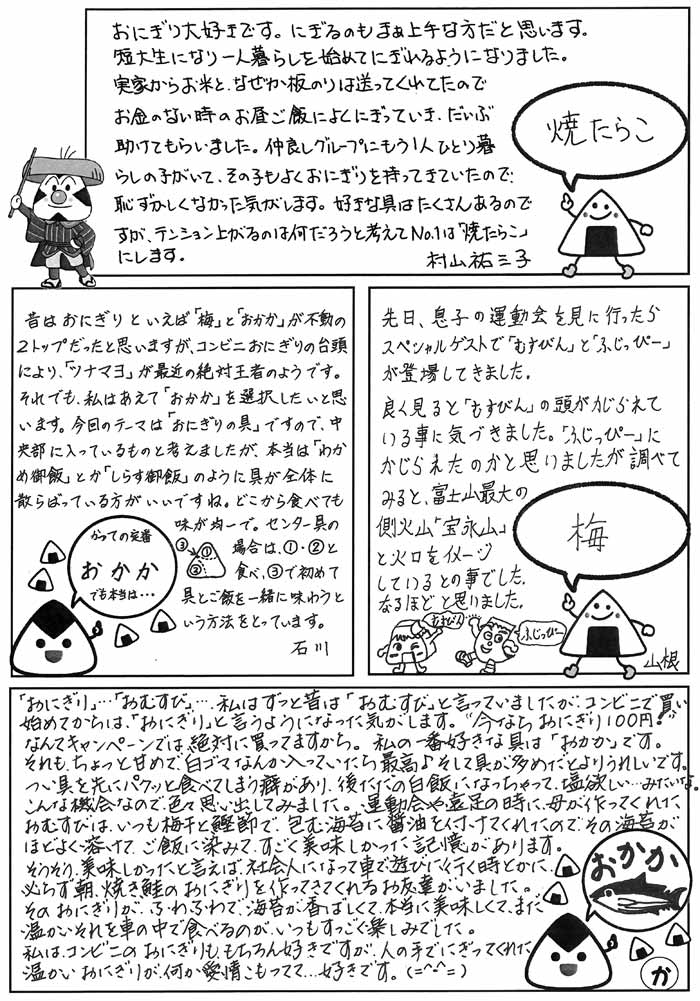 おにぎり大好きです。にぎるのもまぁ上手な方だと思います。
短大生になり一人暮らしを始めてにぎれるようになりました。
実家からお米と、なぜか板のりは送ってくれてたので
お金のない時のお昼ご飯によくにぎっていき、だいぶ
助けてもらいました。仲良しグループにもう1人ひとり暮
らしの子がいて、その子もよくおにぎりを持ってきていたので、
恥ずかしくなかった気がします。好きな具はたくさんあるので
すが、テンション上がるのは何だろうと考えてNo.1は「焼たらこ」
にします。
村山祐三子
焼たらこ
昔はおにぎりといえば「梅」と「おかか」が不動の
2トップだったと思いますが、コンビニおにぎりの台頭
により、「ツナマヨ」が最近の絶対王者のようです。
それでも、私はあえて「おかか」を選択したいと思
います。今回のテーマは「おにぎりの具」ですので、中
央部に入っているものと考えましたが、本当は「わか
め御飯」とか「しらす御飯」のように具が全体に
散らばっている方がいいですね。どこから食べても
味が均一で。センター具の
場合は、①・②と
食べ、③で初めて
具とご飯を一緒に味わうと
いう方法をとっています。
石川
③
①
②
かつての定番
おかか
でも本当は・・・
先日、息子の運動会を見に行ったら
スペシャルゲストで「むすびん」と「ふじっぴー」
が登場してきました。
良く見ると「むすびん」の頭がかじられて
いる事に気づきました。「ふじっぴー」に
かじられたのかと思いましたが調べて
みると、富士山最大の
側火山「宝永山」
と火口をイメージ
しているとの事でした。
なるほどと思いました。
梅
むすびん
ふじっぴー
山根
「おにぎり」…「おむすび」… 私はずっと昔は「おむすび」と言っていましたが、コンビニで買い
始めてからは、「おにぎり」と言うようになった気がします。"今なら おにぎり100円!"
なんてキャンペーンでは絶対に買ってますから。私の一番好きな具は「おかか」です。
それも、ちょっと甘めで、白ゴマなんか入っていたら最高♪そして具が多めだとよりうれしいです。
つい具を先にパクッと食べてしまう癖があり、後はただの白飯になっちゃって、塩欲しい…みたいな。
こんな機会なので色々思い出してみました。運動会や遠足の時に、母が作ってくれた
おむすびは、いつも梅干と鰹節で、包む海苔に醤油を付けてくれたので、その海苔が
ほどよく溶けて、ご飯に染みて、すごく美味しかった記憶があります。
そうそう、美味しかったと言えば、社会人になって車で遊びに行く時とかに、
必らず朝、焼き鮭のおにぎりを作ってきてくれるお友達がいました。
そのおにぎりが、ふわふわで、海苔が香ばしくて、本当に美味しくて、また
温かいそれを車の中で食べるのが、いつもすっごく楽しみでした。
私は、コンビニのおにぎりも、もちろん好きですが、人の手でにぎってくれた
温かいおにぎりが、何か愛情こもってて…好きです。(=^-^=)
おかか
か